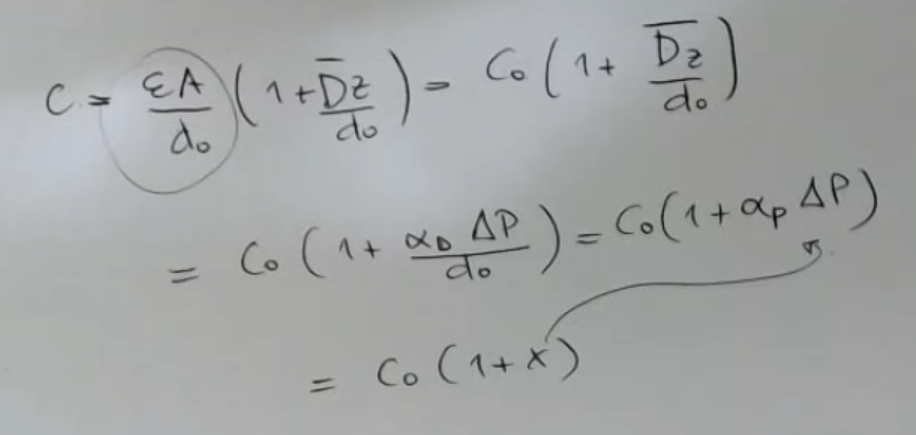 C = εA/d₀ (1 + D̄z/d₀) = C₀ (1 + D̄z/d₀)
= C₀ (1 + α_D ΔP/d₀) = C₀(1 + α_P ΔP)
= C₀ (1 + x)